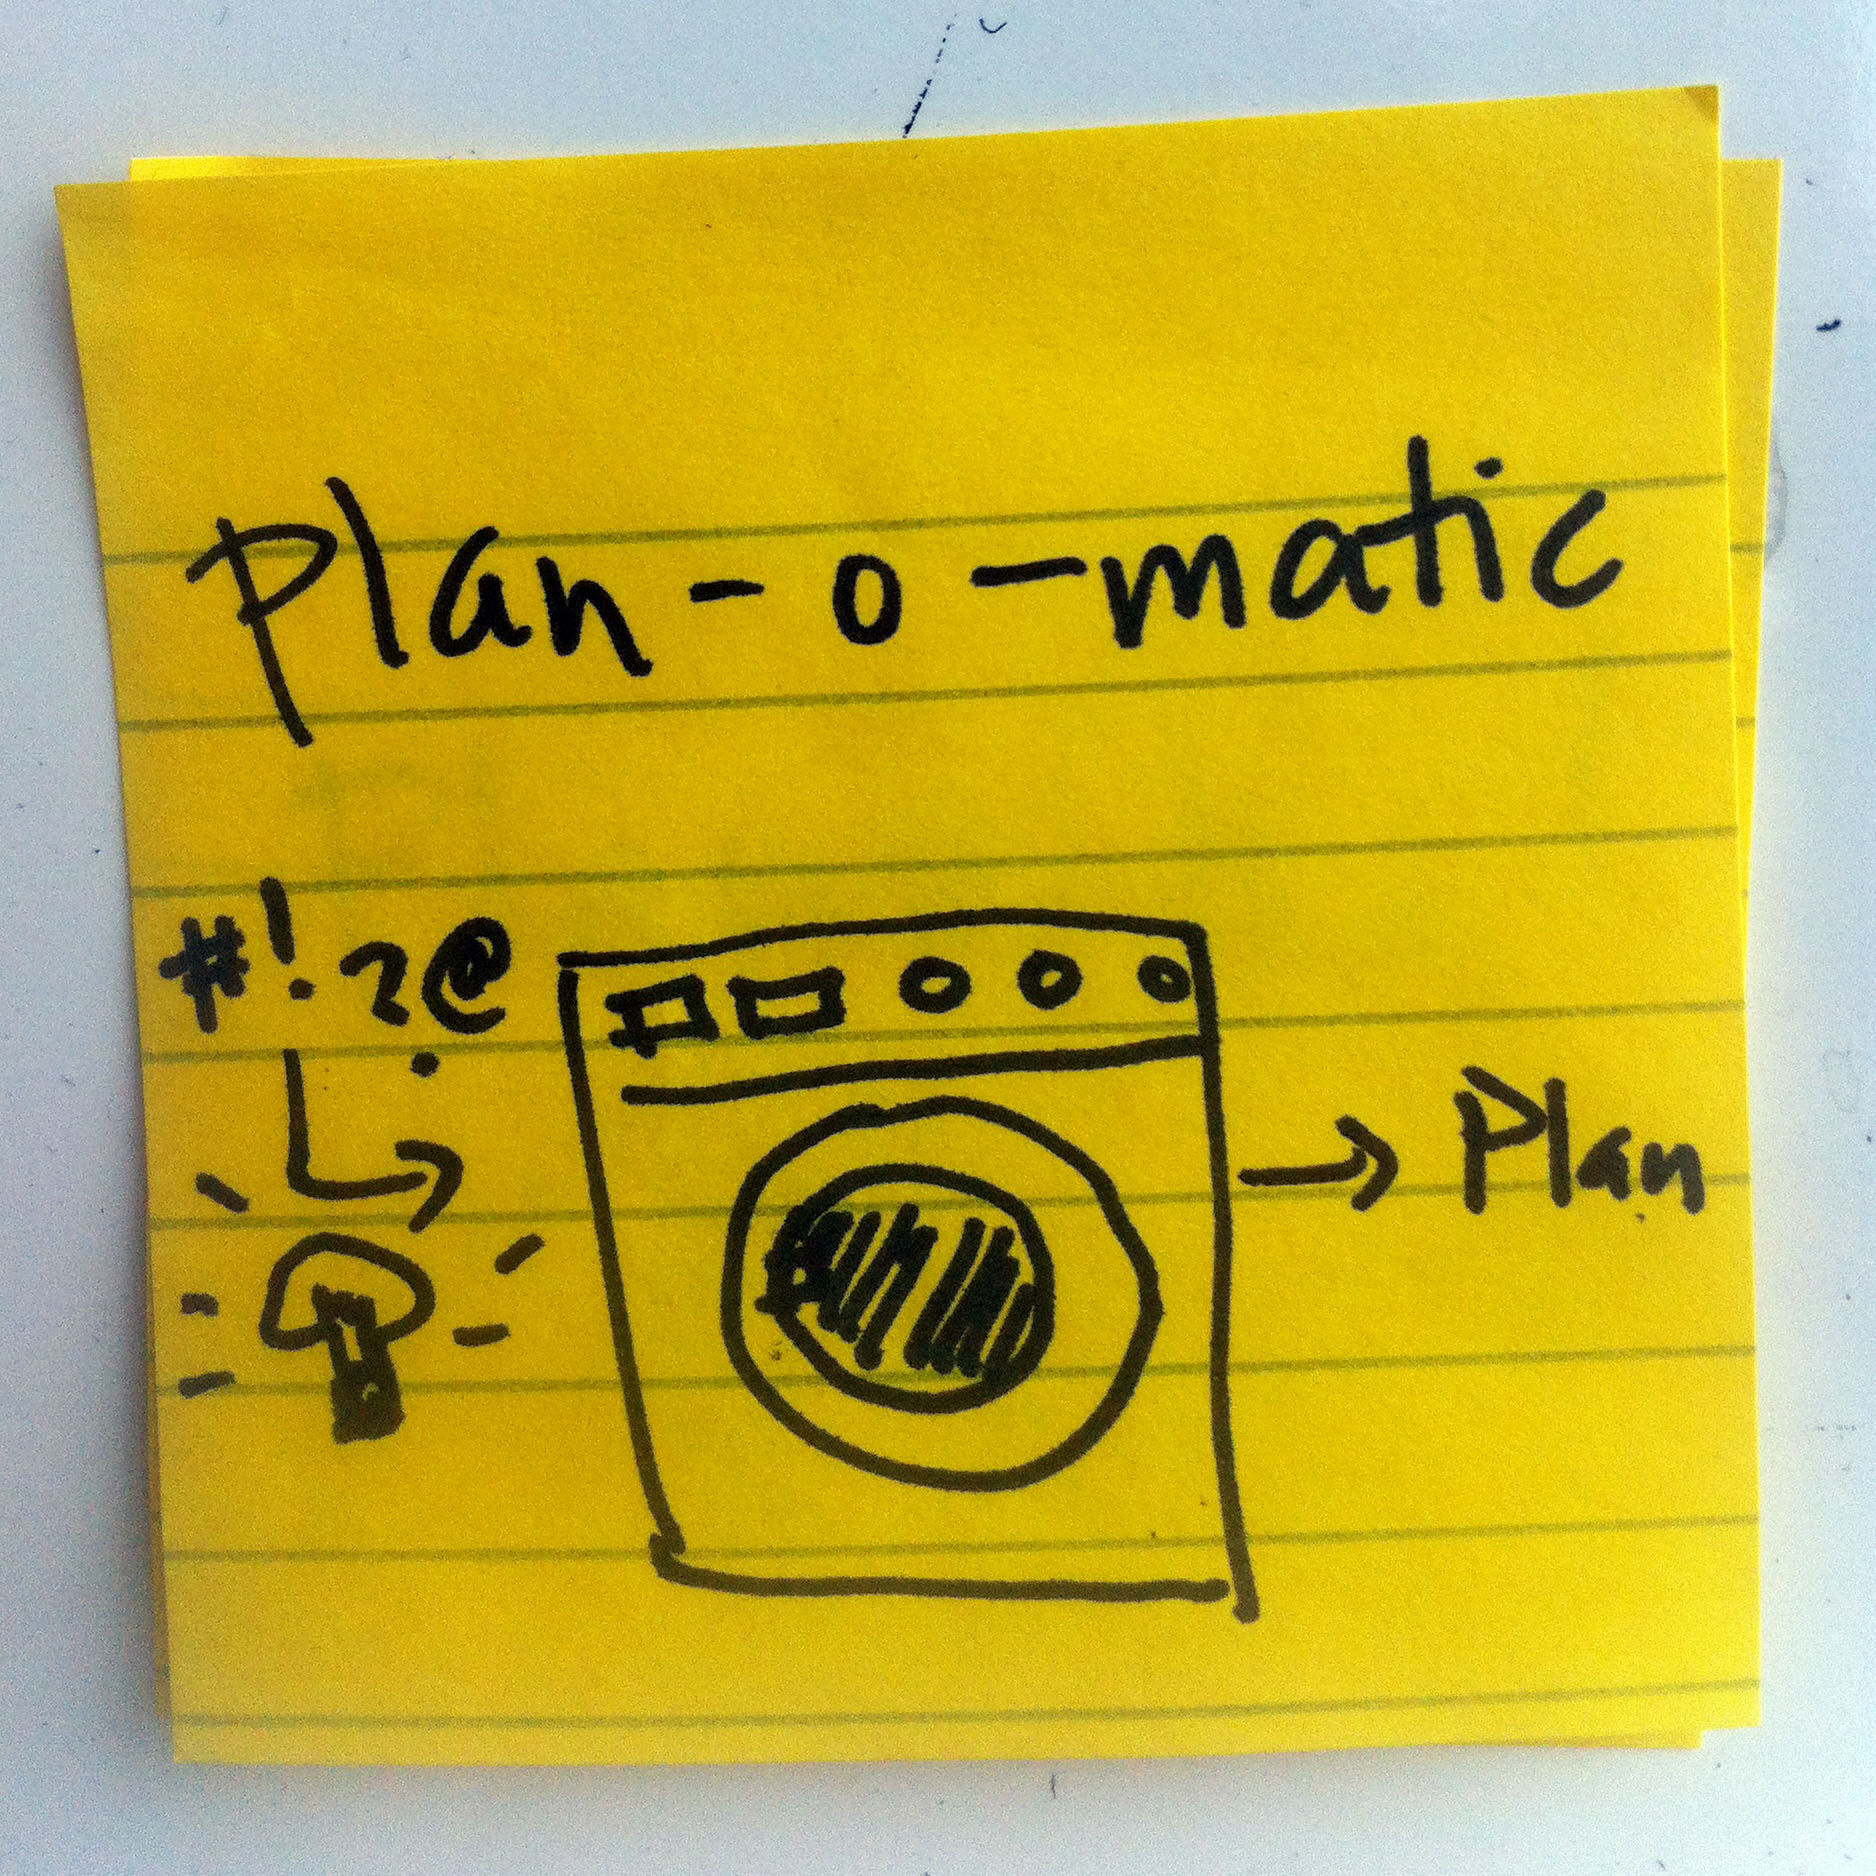 Plan-o-matic
#!?@
Plan